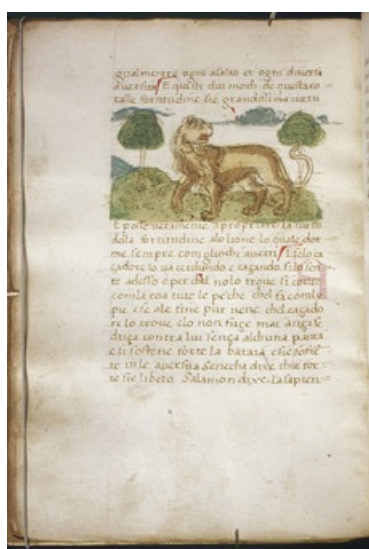 qualmente ogni asalto et ogni diversa
aversita E questi dui modi de questa co
talle fortitudine sie grandissima vertu
E posse veramente apropriere la vertu
della fortitudine alo lione lo quale dor
me sempre con gliochi averti E se lo ca
çadore lo va cerchando e caçando si lo sen
te adesso e per chel nolo trove si covre
com la coa tute le peche chel fa com le
pie e se ale fine pur vene chel caçado
re lo trove elo non fuçe mai ançi se
driça contra lui sença alchuna paura
e li sostene forte la bataia
te in le aversita Senecha dixe chie for
te sie libero Salamon dixe la sapien